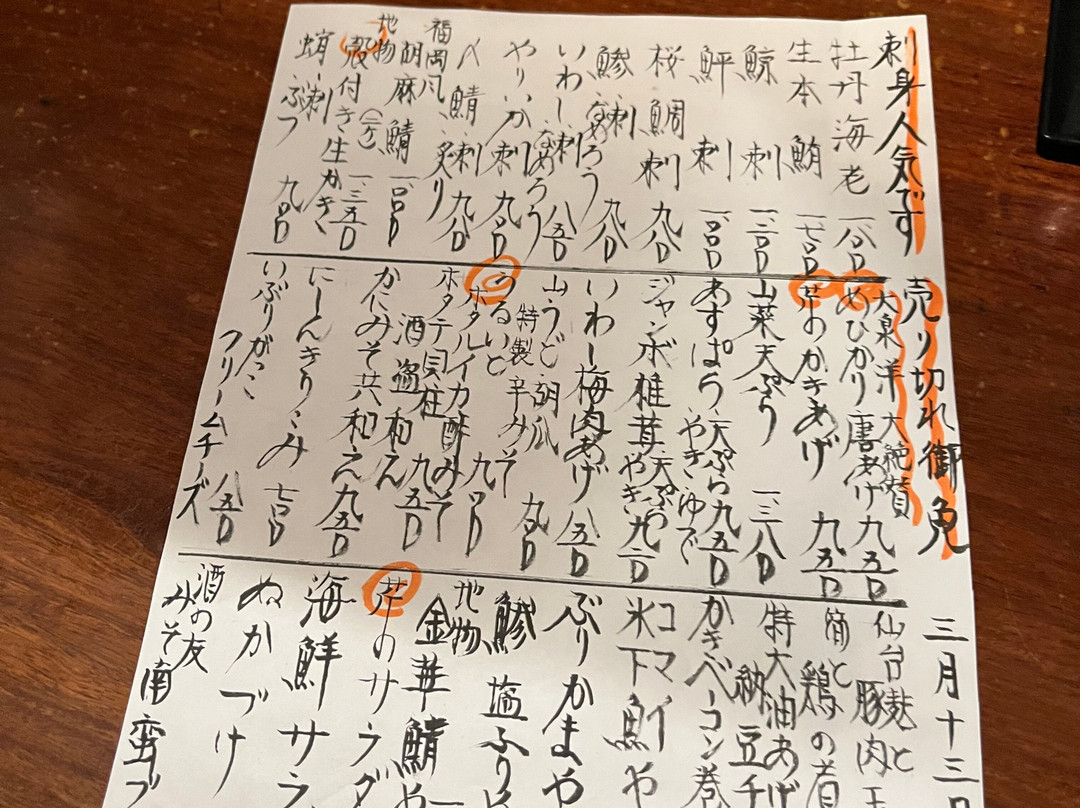 刺身人気です
牡丹海老 一、八〇〇
生本鮪 一、七〇〇
鯨刺 一、二〇〇
鮃刺 一、〇〇〇
桜鯛刺 九八〇
鯵刺 なめろう 九八〇
いわし刺 なめろう 八五〇
やりいか刺 九〇〇
〆鯖刺 炙り 九八〇
福岡風胡麻鯖 一、〇〇〇
地物殻付き生かき (二ケ) 一、三五〇
蛸ぶつ刺 九〇〇
売り切れ御免
大泉洋大絶賛
めひかり唐あげ 九五〇
芹のかきあげ 九五〇
山菜天ぷら 一、三八〇
あすぱら 天ぷら やき ゆで 九五〇
ジャンボ椎茸 天ぷら やき 九二〇
いわし梅肉あげ 八五〇
山うど胡瓜 特製辛みそ 九〇〇
うるいとホタルイカ酢みそ 九〇〇
ホタテ貝柱酒盗和え 九五〇
かにみそ共和え 九五〇
にしんきりこみ 七〇〇
いぶりがっこクリームチーズ 八五〇
三月十三日
仙台麩と豚肉玉
筍と鶏の煮
特大油あげ納豆チ
かきベーコン巻
コマイ 氷下魚や
ぶりかまや
鯵塩ふりや
地物金華鯖や
芹のサラダ
海鮮サラ
ぬかづけ
酒の友みそ南蛮ブ